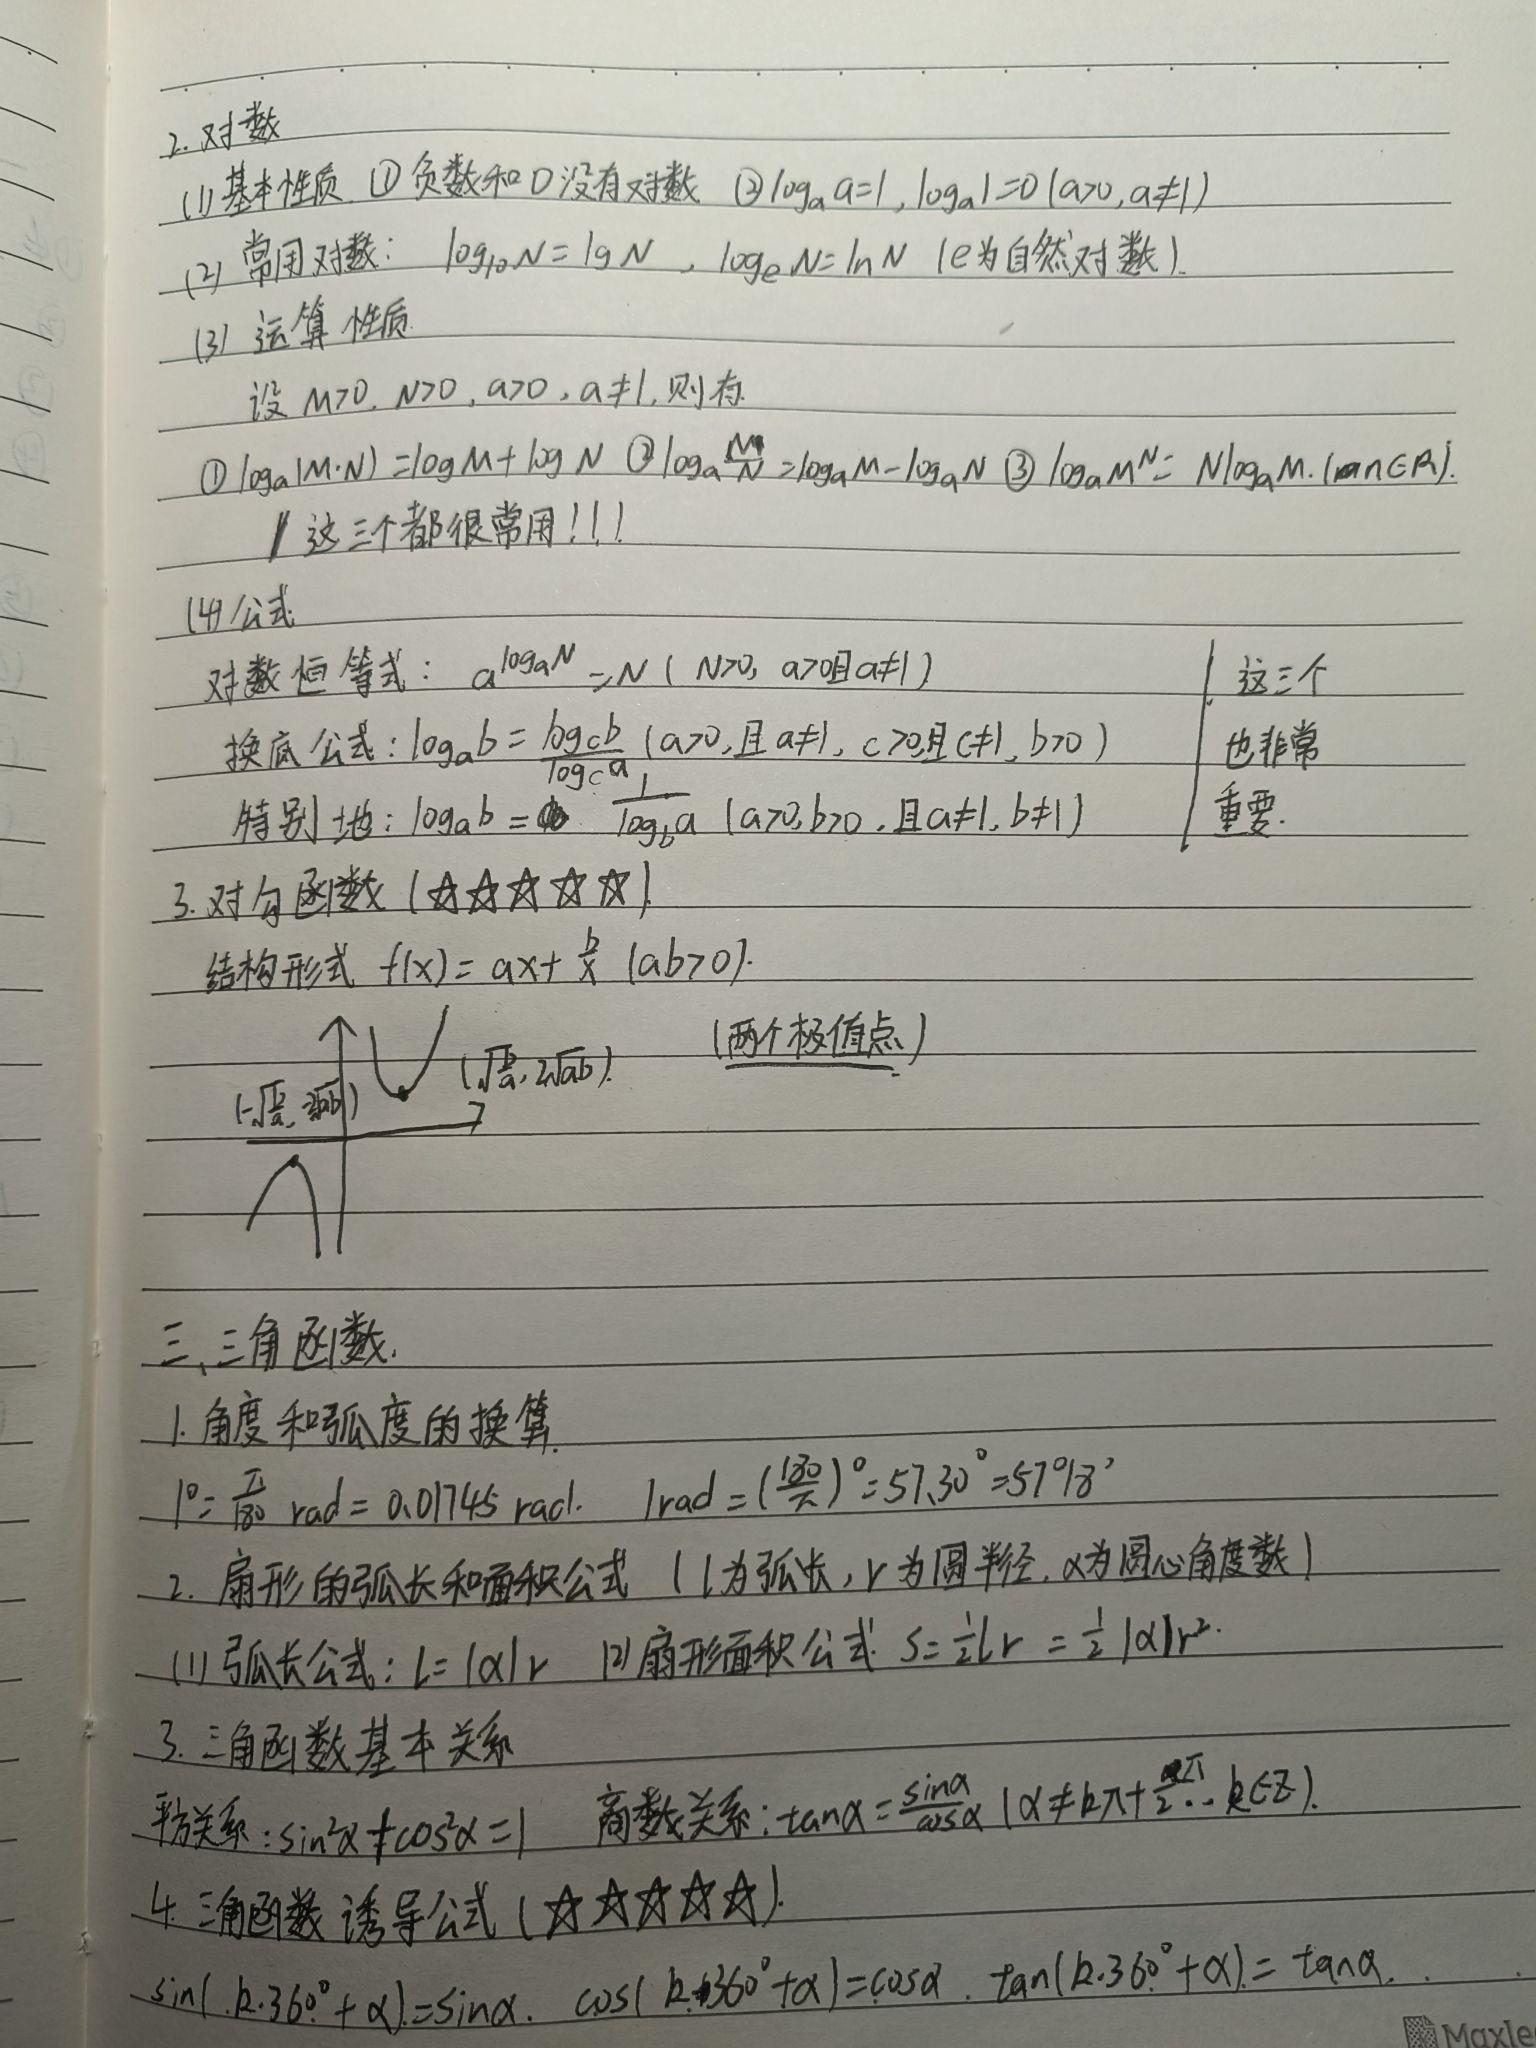 2. 对数
(1) 基本性质 ① 负数和0没有对数 ② logₐa=1, logₐ1=0 (a>0, a≠1)
(2) 常用对数: log₁₀N=lgN , logₑN=lnN (e为自然对数).
(3) 运算性质
设 M>0, N>0, a>0, a≠1, 则有
① logₐ(M·N)=logM+logN ② logₐ\frac{M}{N}=logₐM-logₐN ③ logₐMᴺ= NlogₐM. (n∈R).
这三个都很常用!!!
(4) 公式
对数恒等式: a^{logₐN}=N ( N>0, a>0且a≠1)
换底公式: logₐb=\frac{log_c b}{log_c a} (a>0,且a≠1, c>0且c≠1, b>0)
特别地: logₐb= \frac{1}{log_b a} (a>0,b>0,且a≠1, b≠1)
这三个
也非常
重要.
3. 对勾函数 (☆☆☆☆☆)
结构形式 f(x)=ax+\frac{b}{x} (ab>0).
(\sqrt{\frac{b}{a}}, 2\sqrt{ab}). (两个极值点)
三、三角函数.
1. 角度和弧度的换算.
1°=\frac{π}{180} rad=0.01745 rad. 1rad=(\frac{180}{π})°=57.30°=57°18'
2. 扇形的弧长和面积公式 (l为弧长, r为圆半径, α为圆心角度数)
(1) 弧长公式: l=|α|r (2) 扇形面积公式 S=\frac{1}{2}lr=\frac{1}{2}|α|r².
3. 三角函数基本关系
平方关系: sin²α+cos²α=1 商数关系: tanα=\frac{sinα}{cosα} (α≠kπ+\frac{π}{2}.. k∈Z).
4. 三角函数诱导公式 (☆☆☆☆☆).
sin(k·360°+α)=sinα. cos(k·360°+α)=cosα. tan(k·360°+α)=tanα.
Maxle